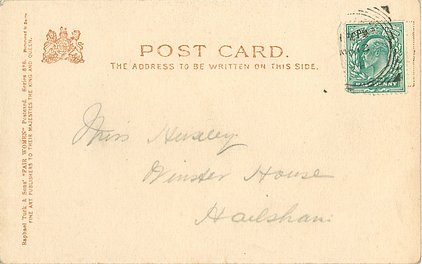 POST CARD.
THE ADDRESS TO BE WRITTEN ON THIS SIDE.
Miss
House
Hailsham
Raphael Tuck & Sons' "FAIR WOMEN" Postcard. Series
FINE ART PUBLISHERS TO THEIR MAJESTIES THE KING AND QUEEN.